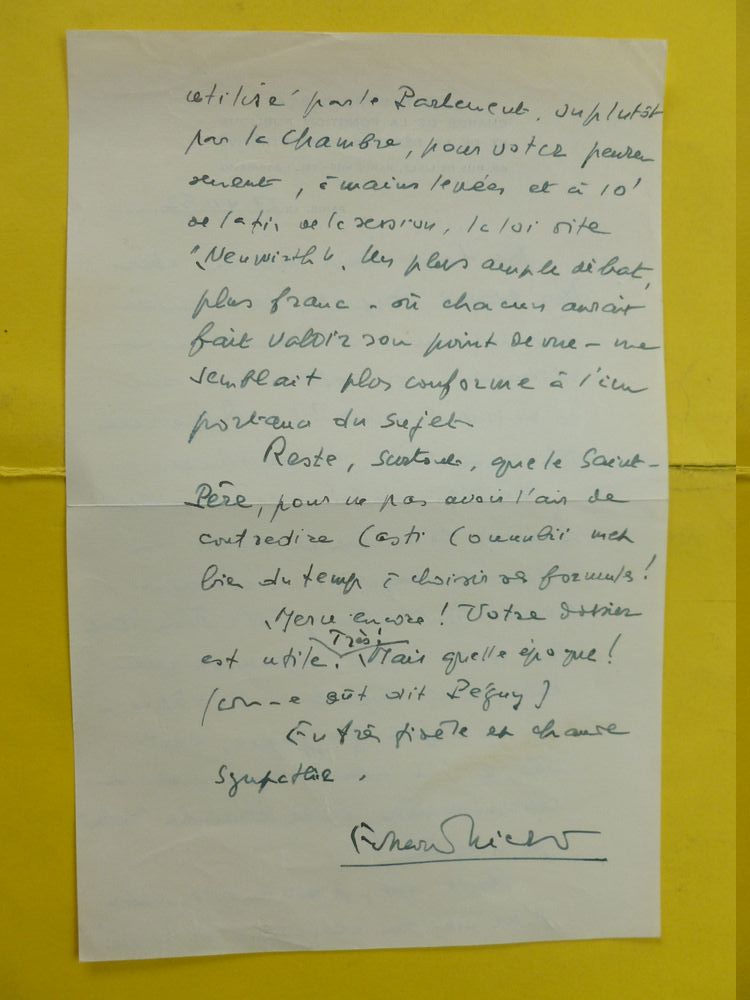 utilisé par le Parlement, ou plutôt
par la Chambre, pour voter peureu
sement, à mains levées et à 10'
de la fin de la session, la loi dite
"Neuwirth". Un plus ample débat,
plus franc - où chacun aurait
fait valoir son point de vue - me
semblait plus conforme à l'im
portance du sujet.
Reste, surtout, que le Saint-
Père, pour ne pas avoir l'air de
contredire Casti Connubii met
bien du temps à choisir ses formules!
Merci encore! Votre dossier
Très!
est utile. Mais quelle époque!
(comme eût dit Péguy)
En très fidèle et chaude
sympathie.
Edmond Michelet